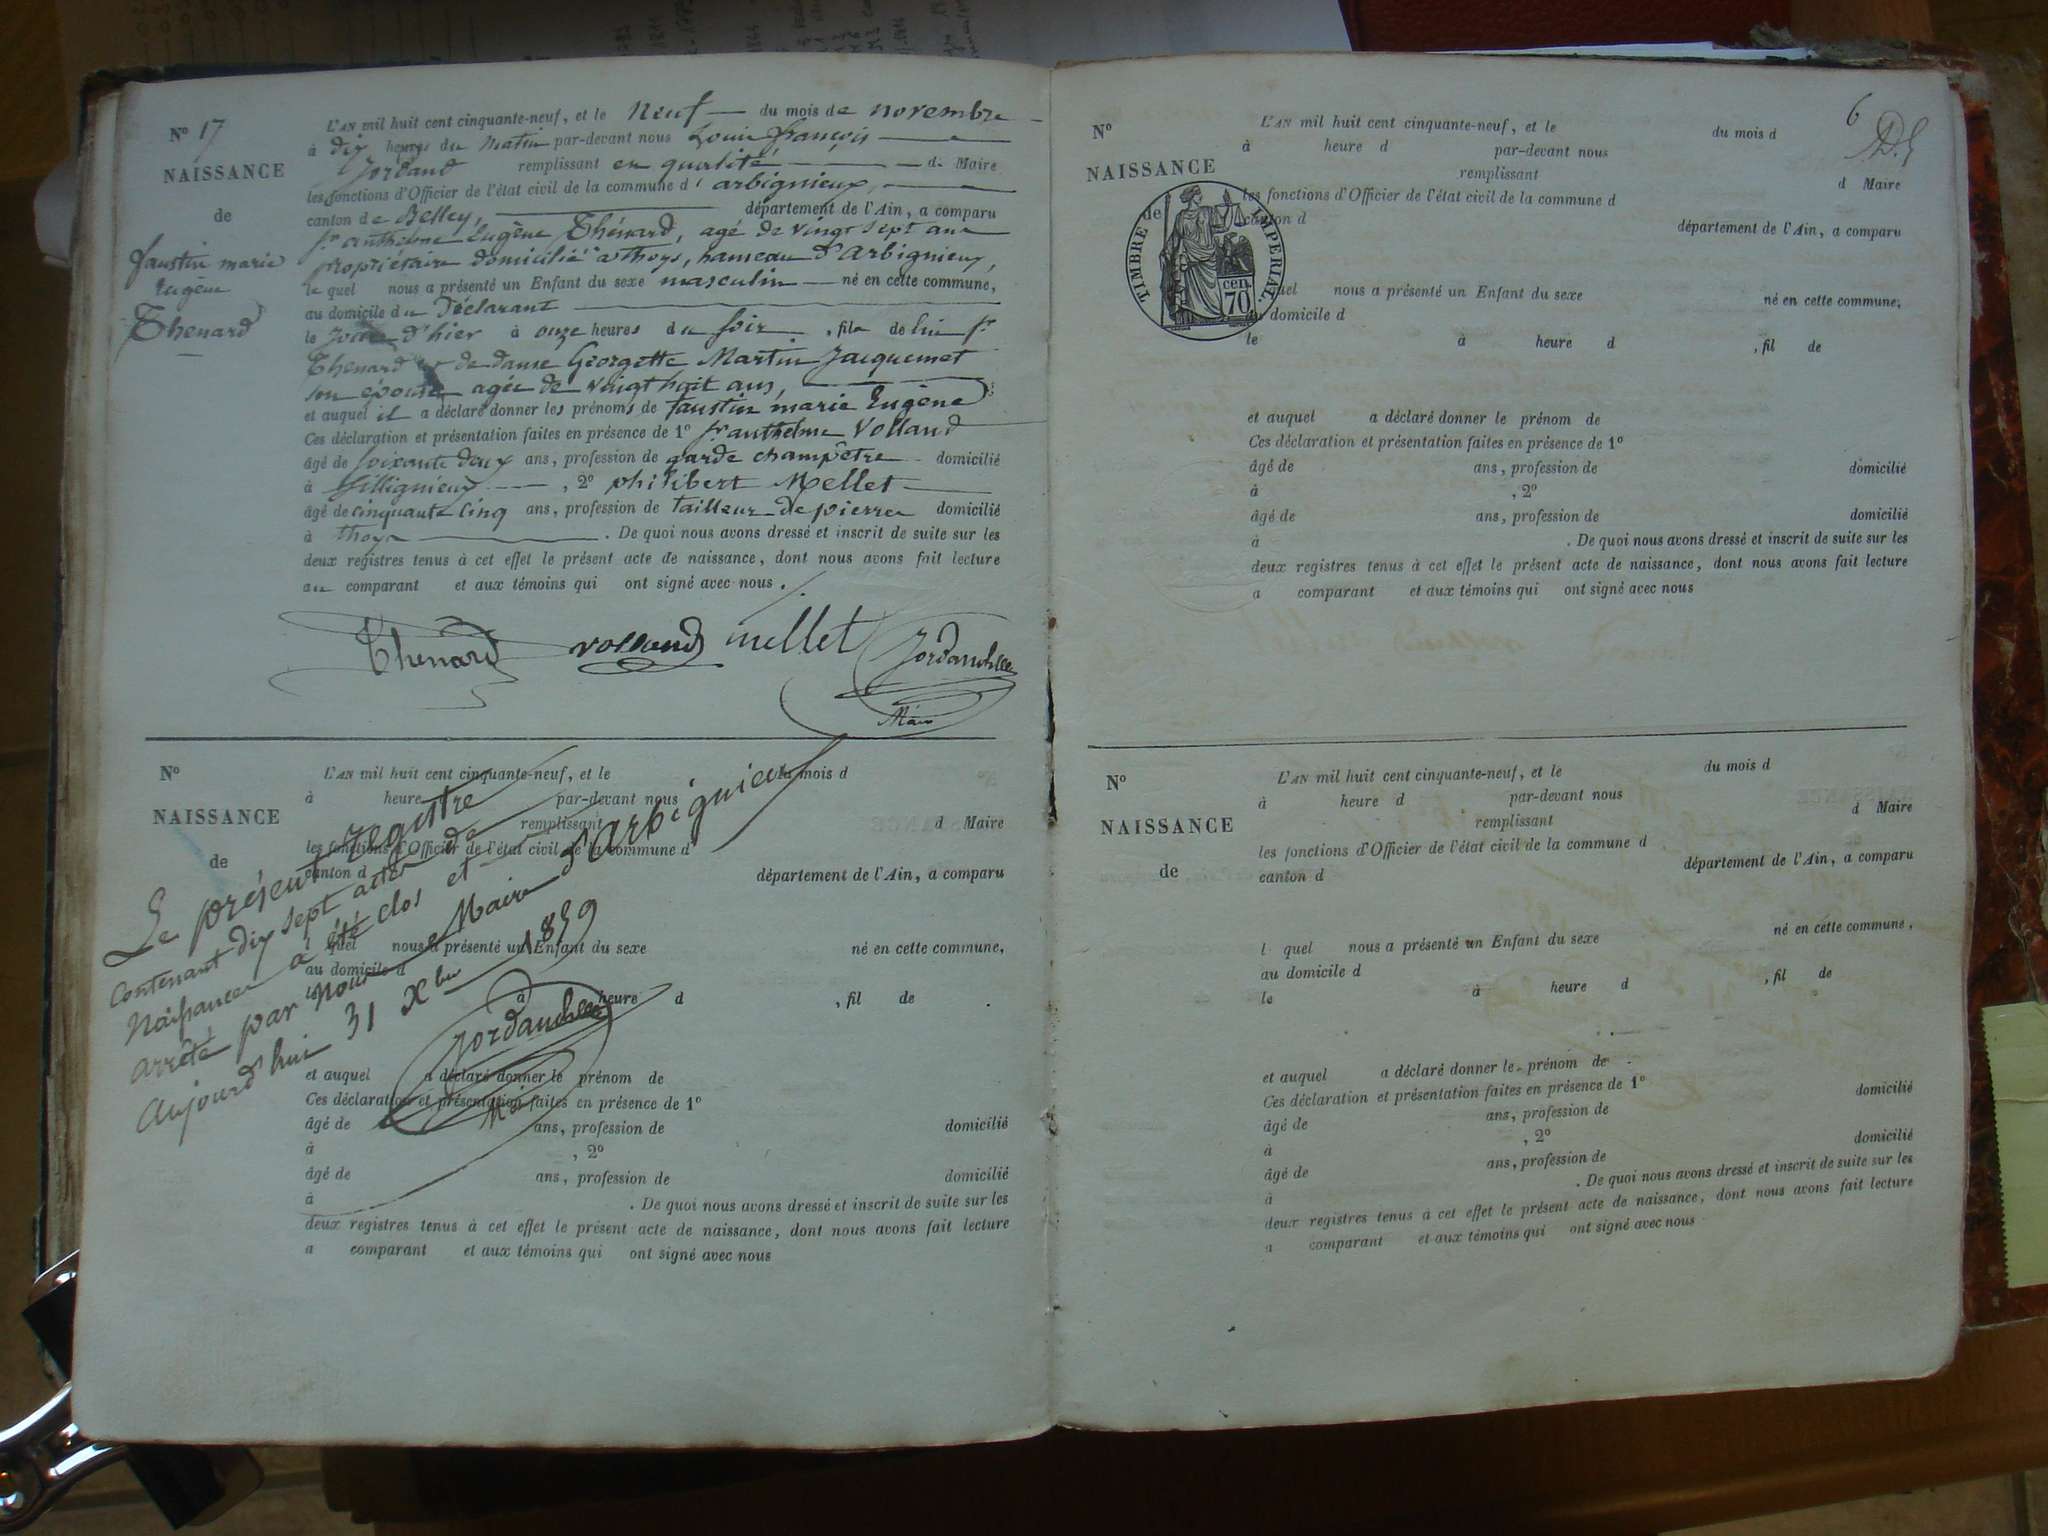 N° 17
NAISSANCE
de
faustin marie
Eugène
Thenard
L'AN mil huit cent cinquante-neuf, et le Neuf du mois de novembre
à dix heures du matin par-devant nous Louis françois
Jordand remplissant en qualité de Maire
les fonctions d'Officier de l'état civil de la commune d'arbignieux,
canton de Belley, département de l'Ain, a comparu
Sr anthelme Eugène Thénard, agé de vingt sept ans
propriétaire domicilié à thoys, hameau d'arbignieux,
le quel nous a présenté un Enfant du sexe masculin né en cette commune,
au domicile du Déclarant
le jour d'hier à onze heures du soir, fils de lui Sr
Thenard et de dame Georgette Martin Jacquemet
son épouse agée de vingt huit ans,
et auquel il a déclaré donner les prénoms de faustin marie Eugène
Ces déclaration et présentation faites en présence de 1° Sr anthelme Volland
âgé de soixante deux ans, profession de garde champêtre domicilié
à fillignieux, 2° philibert Mellet
âgé de cinquante cinq ans, profession de tailleur de pierre domicilié
à thoys. De quoi nous avons dressé et inscrit de suite sur les
deux registres tenus à cet effet le présent acte de naissance, dont nous avons fait lecture
au comparant et aux témoins qui ont signé avec nous.
Thenard volland mellet Jordand
Maire
N°
NAISSANCE
de
L'AN mil huit cent cinquante-neuf, et le du mois d
à heure par-devant nous
remplissant d Maire
les fonctions d'Officier de l'état civil de la commune d
canton d département de l'Ain, a comparu
l quel nous a présenté un Enfant du sexe né en cette commune,
au domicile d
à heure d , fil de
et auquel a déclaré donner le prénom de
Ces déclaration et présentation faites en présence de 1°
âgé de ans, profession de domicilié
à , 2°
âgé de ans, profession de domicilié
à . De quoi nous avons dressé et inscrit de suite sur les
deux registres tenus à cet effet le présent acte de naissance, dont nous avons fait lecture
a comparant et aux témoins qui ont signé avec nous
Le présent registre
contenant dix sept actes de
Naissances a été clos et
arrêté par Nous Maire d'arbignieux
aujourd'hui 31 Xbre 1859
Jordand
Maire
6
N°
NAISSANCE
de
TIMBRE IMPERIAL.
cen.
70
L'AN mil huit cent cinquante-neuf, et le du mois d
à heure d par-devant nous
remplissant d Maire
les fonctions d'Officier de l'état civil de la commune d
canton d département de l'Ain, a comparu
quel nous a présenté un Enfant du sexe né en cette commune,
au domicile d
le à heure d , fil de
et auquel a déclaré donner le prénom de
Ces déclaration et présentation faites en présence de 1°
âgé de ans, profession de domicilié
à , 2°
âgé de ans, profession de domicilié
à . De quoi nous avons dressé et inscrit de suite sur les
deux registres tenus à cet effet le présent acte de naissance, dont nous avons fait lecture
a comparant et aux témoins qui ont signé avec nous
N°
NAISSANCE
de
L'AN mil huit cent cinquante-neuf, et le du mois d
à heure d par-devant nous
remplissant d Maire
les fonctions d'Officier de l'état civil de la commune d
canton d département de l'Ain, a comparu
l quel nous a présenté un Enfant du sexe né en cette commune,
au domicile d
le à heure d , fil de
et auquel a déclaré donner le prénom de
Ces déclaration et présentation faites en présence de 1°
âgé de ans, profession de domicilié
à , 2°
âgé de ans, profession de domicilié
à . De quoi nous avons dressé et inscrit de suite sur les
deux registres tenus à cet effet le présent acte de naissance, dont nous avons fait lecture
a comparant et aux témoins qui ont signé avec nous